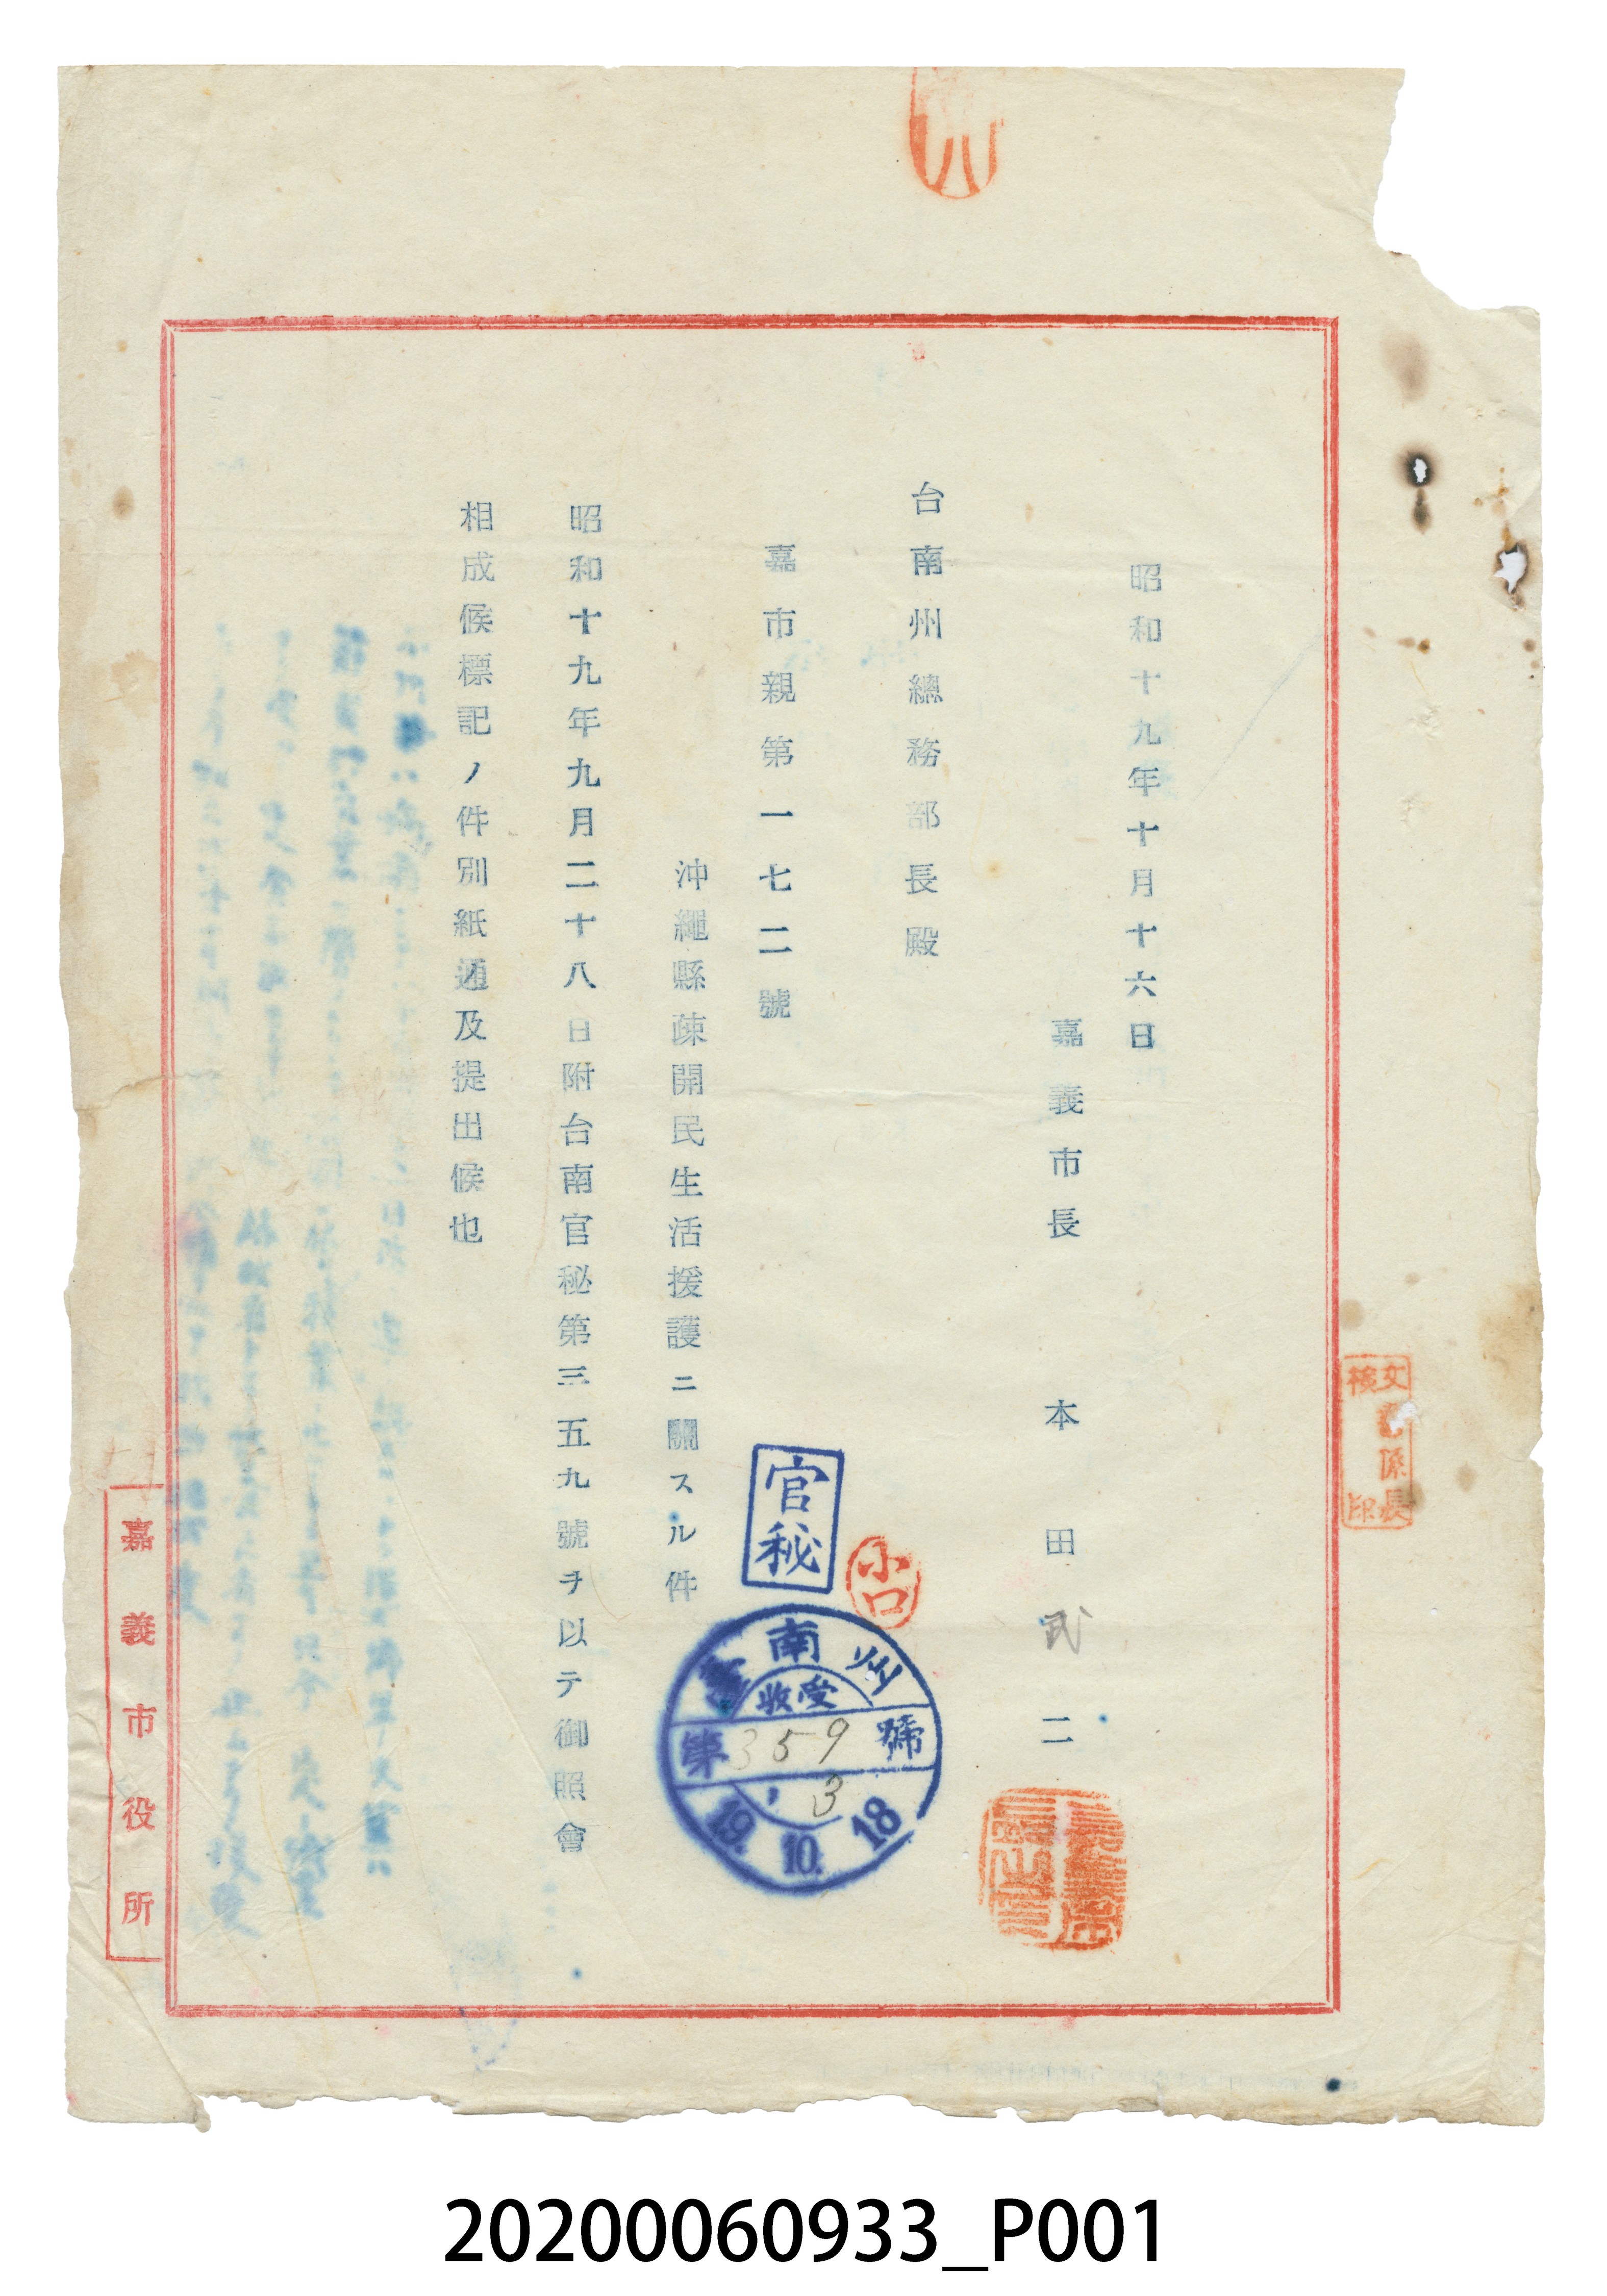 昭和十九年十月十六日
嘉義市長 本田武二
台南州總務部長殿
嘉市親第一七二號
沖繩縣疎開民生活援護ニ關スル件
昭和十九年九月二十八日附台南官秘第三五九號ヲ以テ御照會
相成候標記ノ件別紙通及提出候也
官秘
小口
臺南州
收受
第359號
3
19.10.18
文書係長
檢印
嘉義市役所
20200060933_P001